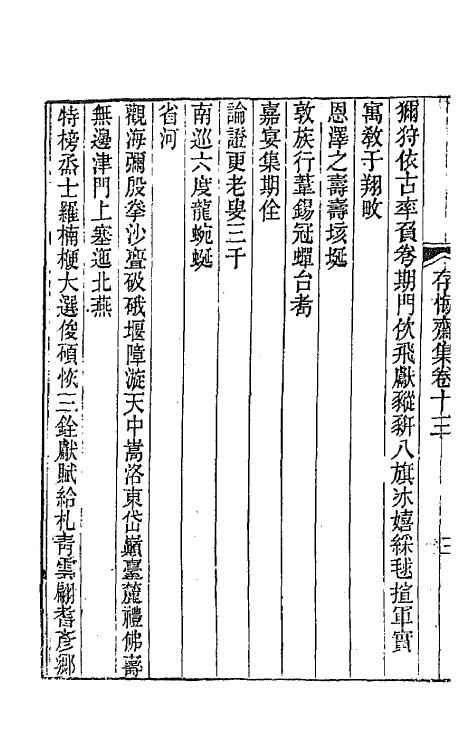 存悔齋集卷十三
三
獮狩依古率貟劵期門佽飛獻豵豜八旗冰嬉綵毬揎軍實
寓敎于翔畋
恩澤之壽壽垓埏
敦族行葦錫冠蟬台耇
嘉宴集期佺
論證更老叟三千
南巡六度龍蜿蜒
省河
觀海彌殷拳沙亹破硪堰障漩天中嵩洛東岱巔臺麓禮佛壽
無邊津門上塞迤北燕
特榜烝士羅楠楩大選俊碩恢三銓獻賦給札靑雲翩耆彦鄉